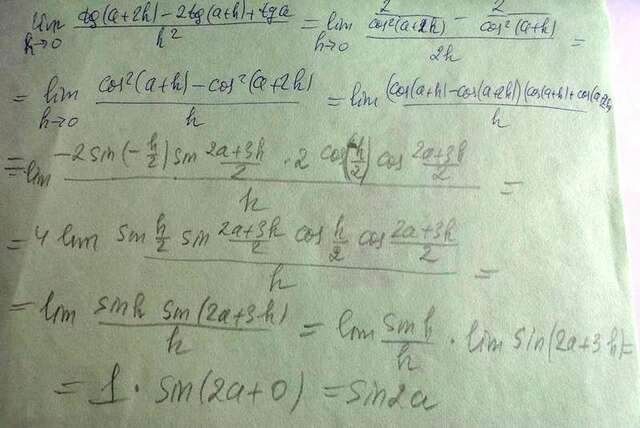 lim h→0 (tg(a+2h) - 2tg(a+h) + tg a) / h² = lim h→0 (2/cos²(a+2h) - 2/cos²(a+h)) / 2h =
= lim h→0 (cos²(a+h) - cos²(a+2h)) / h = lim (cos(a+h) - cos(a+2h))(cos(a+h) + cos(a+2h)) / h
= lim (-2 sin(-h/2) sin (2a+3h)/2 · 2 cos(h/2) cos (2a+3h)/2) / h =
= 4 lim (sin h/2 sin (2a+3h)/2 cos h/2 cos (2a+3h)/2) / h =
= lim (sin h sin(2a+3h)) / h = lim sin h / h · lim sin(2a+3h) =
= 1 · sin(2a+0) = sin 2a